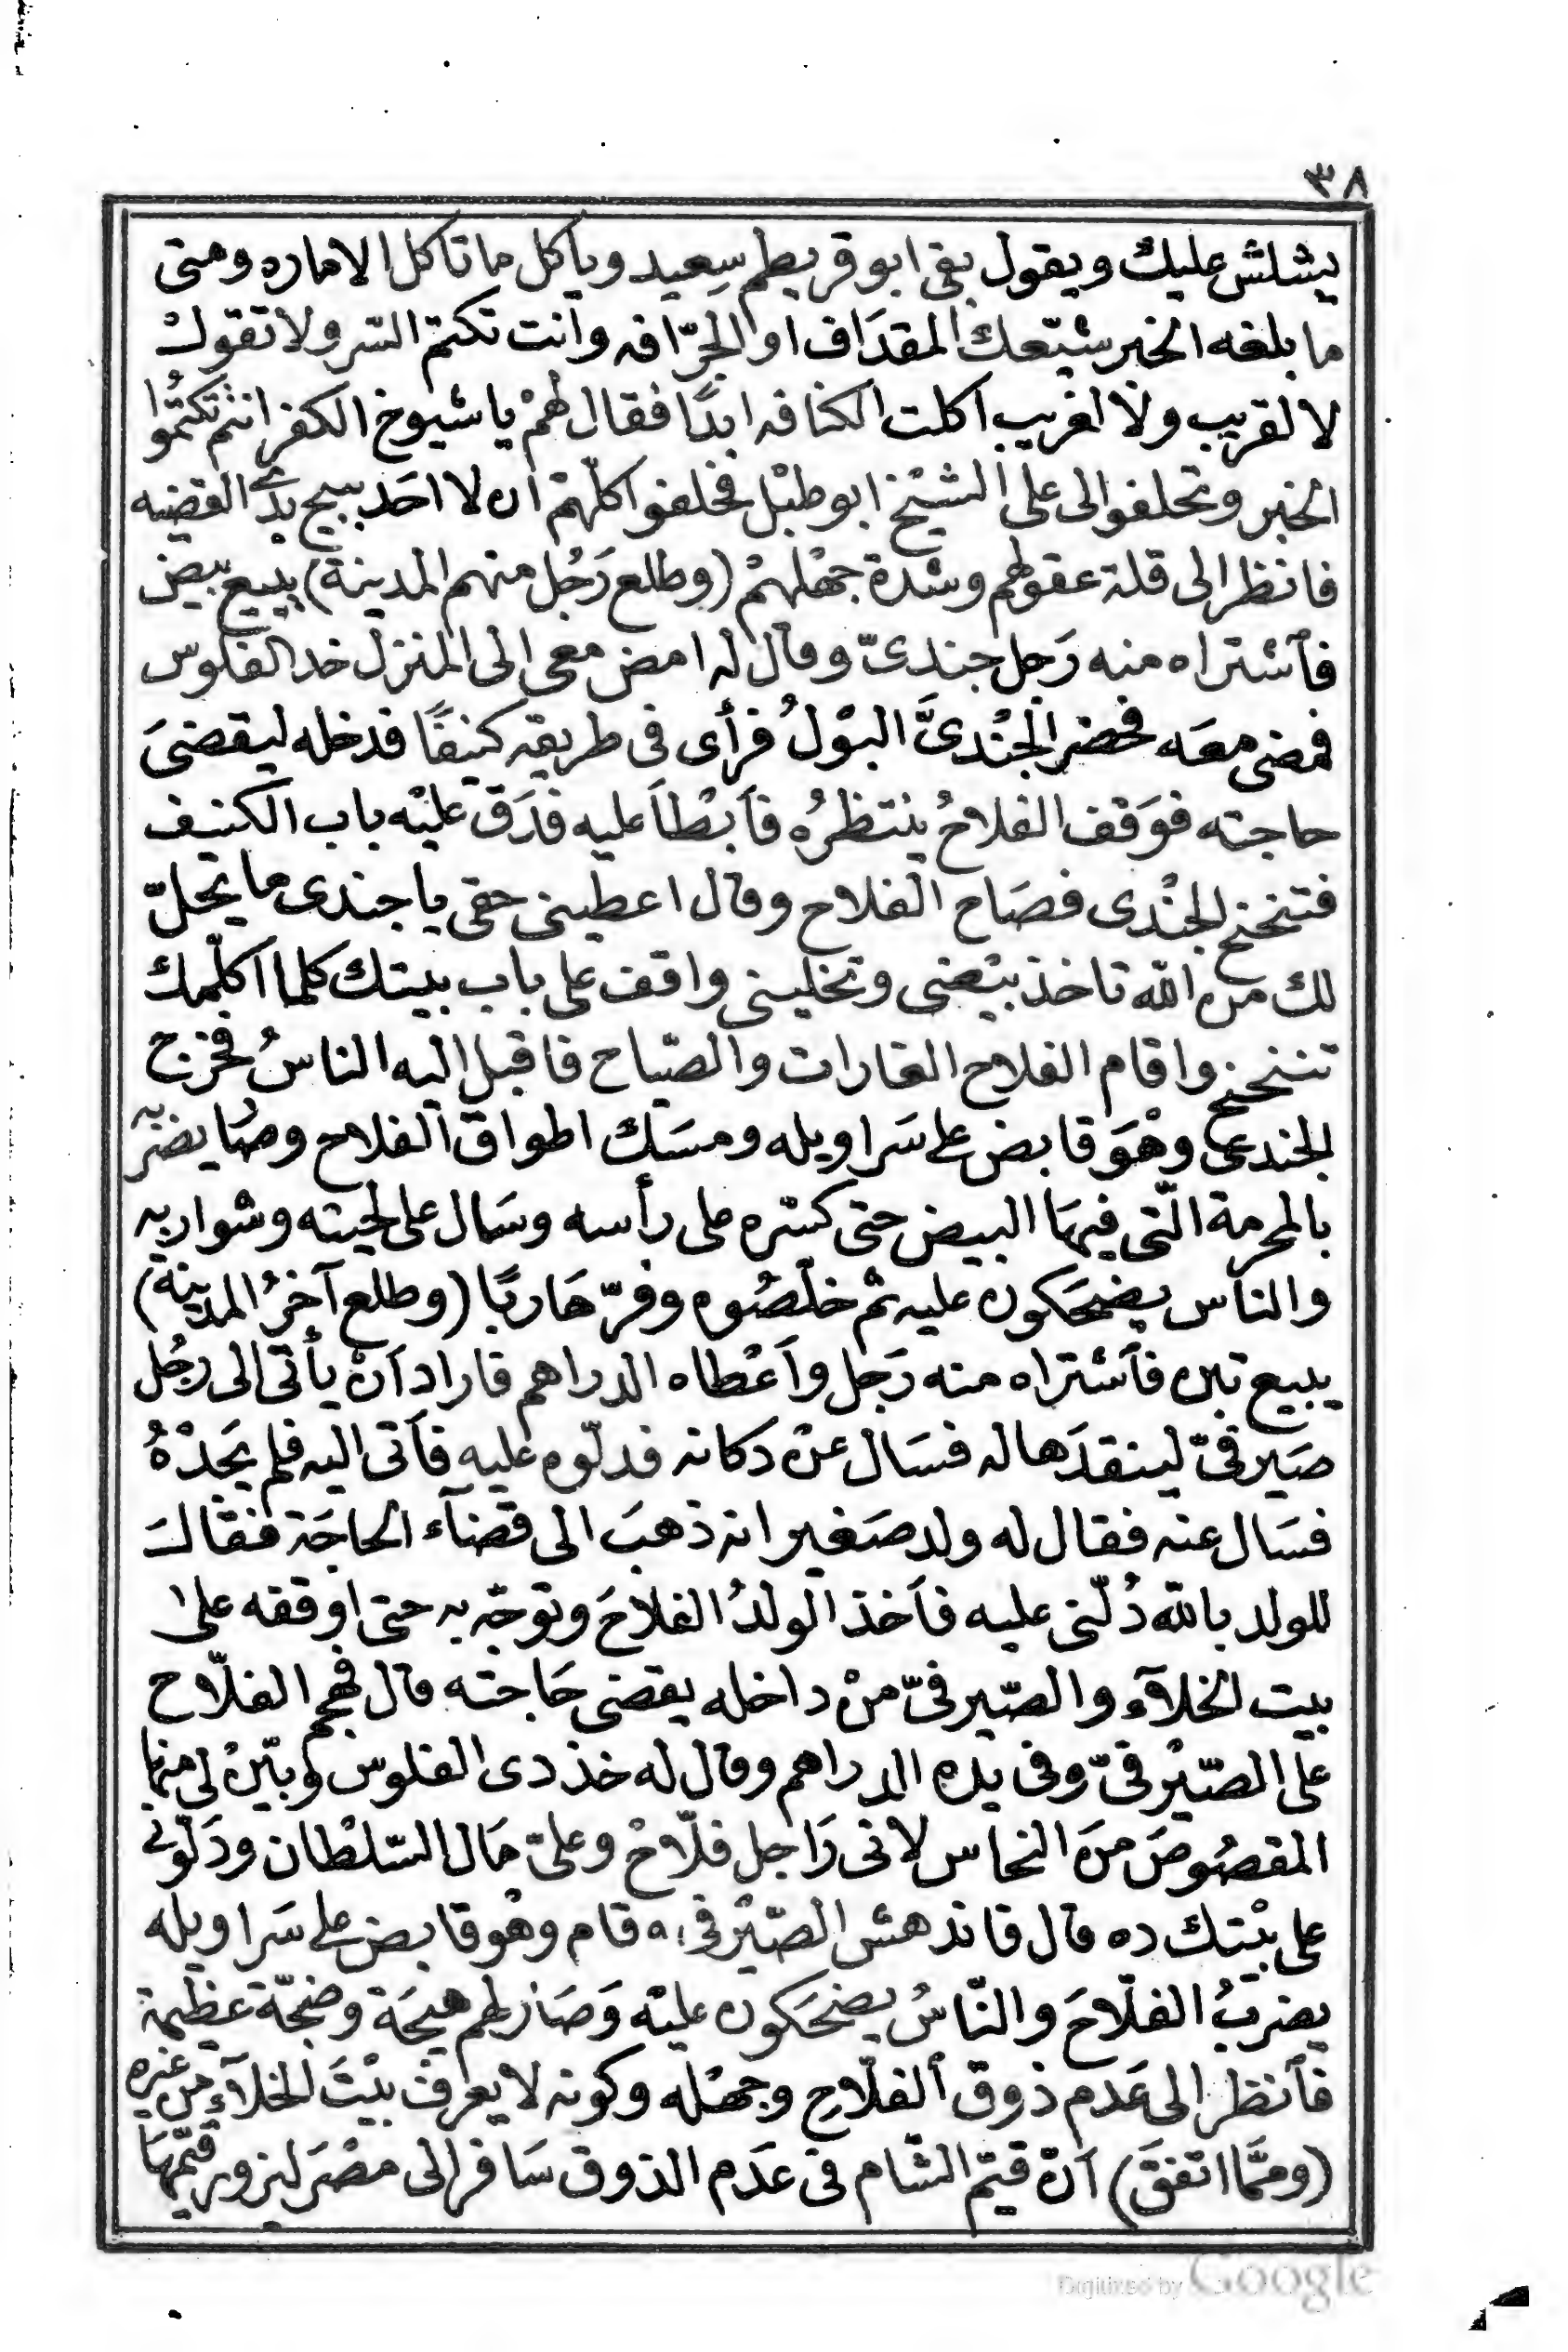 ٣٨
يشلش عليك ويقول بقى ابو قريطم سِعيد وياكل ما تاكل الاماره ومتى
ما بلغه الخبر شيّعك المقدَاف او الجرّافه وانت تكتم السّر ولا تقول
لا لقريب ولا لغريب اكلت الكنافه ابدًا فقال لهمْ يا شيوخ الكفر انتم تكتمُوا
الخبر وتحلفوا لى على الشيْخ ابو طبْل فحلفوا كلّهمْ ان لا احَد يبيح بدى القضيه
فانظر الى قلة عقولهم وشدة جهْلهمْ (وطلع رَجُل منهم المدينة) يبيع بيض
فآشتراه منه رَجل جندىّ وقال له امض معى الى المنزل خد الفلوس
فمضى معَه فحضر الجُنْدىَّ البوْلُ فرأى فى طريقه كنيفًا فدخله ليقضىَ
حاجته فوَقفَ الفلاحُ ينتظرُه فأبْطأَ عليه فدَق عليْه باب الكنيف
فتنحنح الجنْدى فصَاح الفلاح وقال اعطينى حقى يا جندى ما يحلّ
لك من الله تاخذ بيْضى وتخلينى واقف على باب بيتك كلما اكلّمك
تتنحنح واقام الفلاح الغارات والصّياح فاقبل اليه الناسُ فخرج
الجندى وهْوَ قابض على سَراويله ومسَك اطواق الفلاح وصَار يضربه
بالمحرمة الّتى فيهَا البيض حتى كسّره على رأسه وسَال على لحيته وشواربه
والناس يضحَكون عليه ثم خلّصُوه وفرّ هَاربًا (وطلع آخرُ المدينة)
يبيع تبن فآشتراه منه رَجل وأعْطاه الدراهم فاراد أن يأتى الى رجُل
صَيرفىّ لينقدَها له فسَال عنْ دكانه فدلّوه عليه فأتى اليه فلم يَجدْهُ
فسَال عنه فقال له ولد صَغير انه ذهبَ الى قضآء الحاجَة فقالَ
للولد بالله دُلّنى عليه فأخذ الولدُ الفلاحَ وتوجّه به حتى اوقفه على
بيت الخلآء والصّيرفىّ منْ داخله يقضى حَاجته قال فهجم الفلّاح
على الصّيْرفىّ وفى يده الدراهم وقال له خذ دى الفلوس وبيّنْ لى منها
المقصُوصَ منَ النحاس لانى رَاجل فلّاحْ وعلىّ مَال السّلطان ودَلّونى
على بيْتك ده قال فاندهش الصّيْرفى وقام وهُو قابض على سَراويله
يضربُ الفلّاحَ والنّاسُ يضحَكون عليْه وَصَار لهم هيجَة وضجّة عظيمة
فآنظر الى عَدم ذوق ٱلفلّاحِ وجهْله وكونه لا يعرف بيْتَ الخلآءِ من غيره
(وممَّا اتفقَ) أنّ قيّم الشّام فى عدَم الذوق سَافر الى مصْرَ ليزور قيّمهَا
Digitized by Google